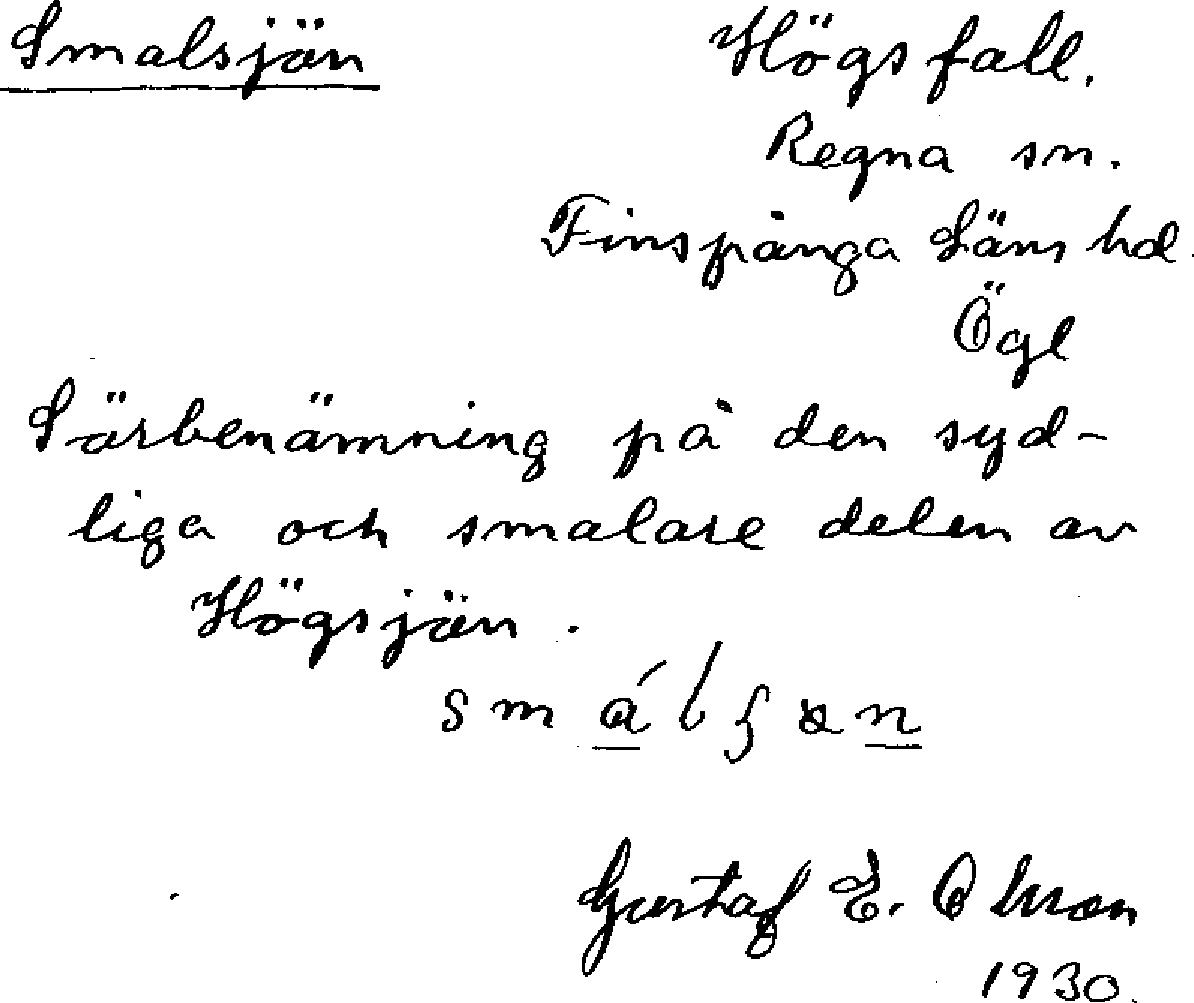 Smalsjän
Högsfall.
Regna sn.
Finspånga Läns hd.
Ögl
Särbenämning på den syd-
liga och smalare delen av
Högsjän.
Gustaf E. Olsson
1930.